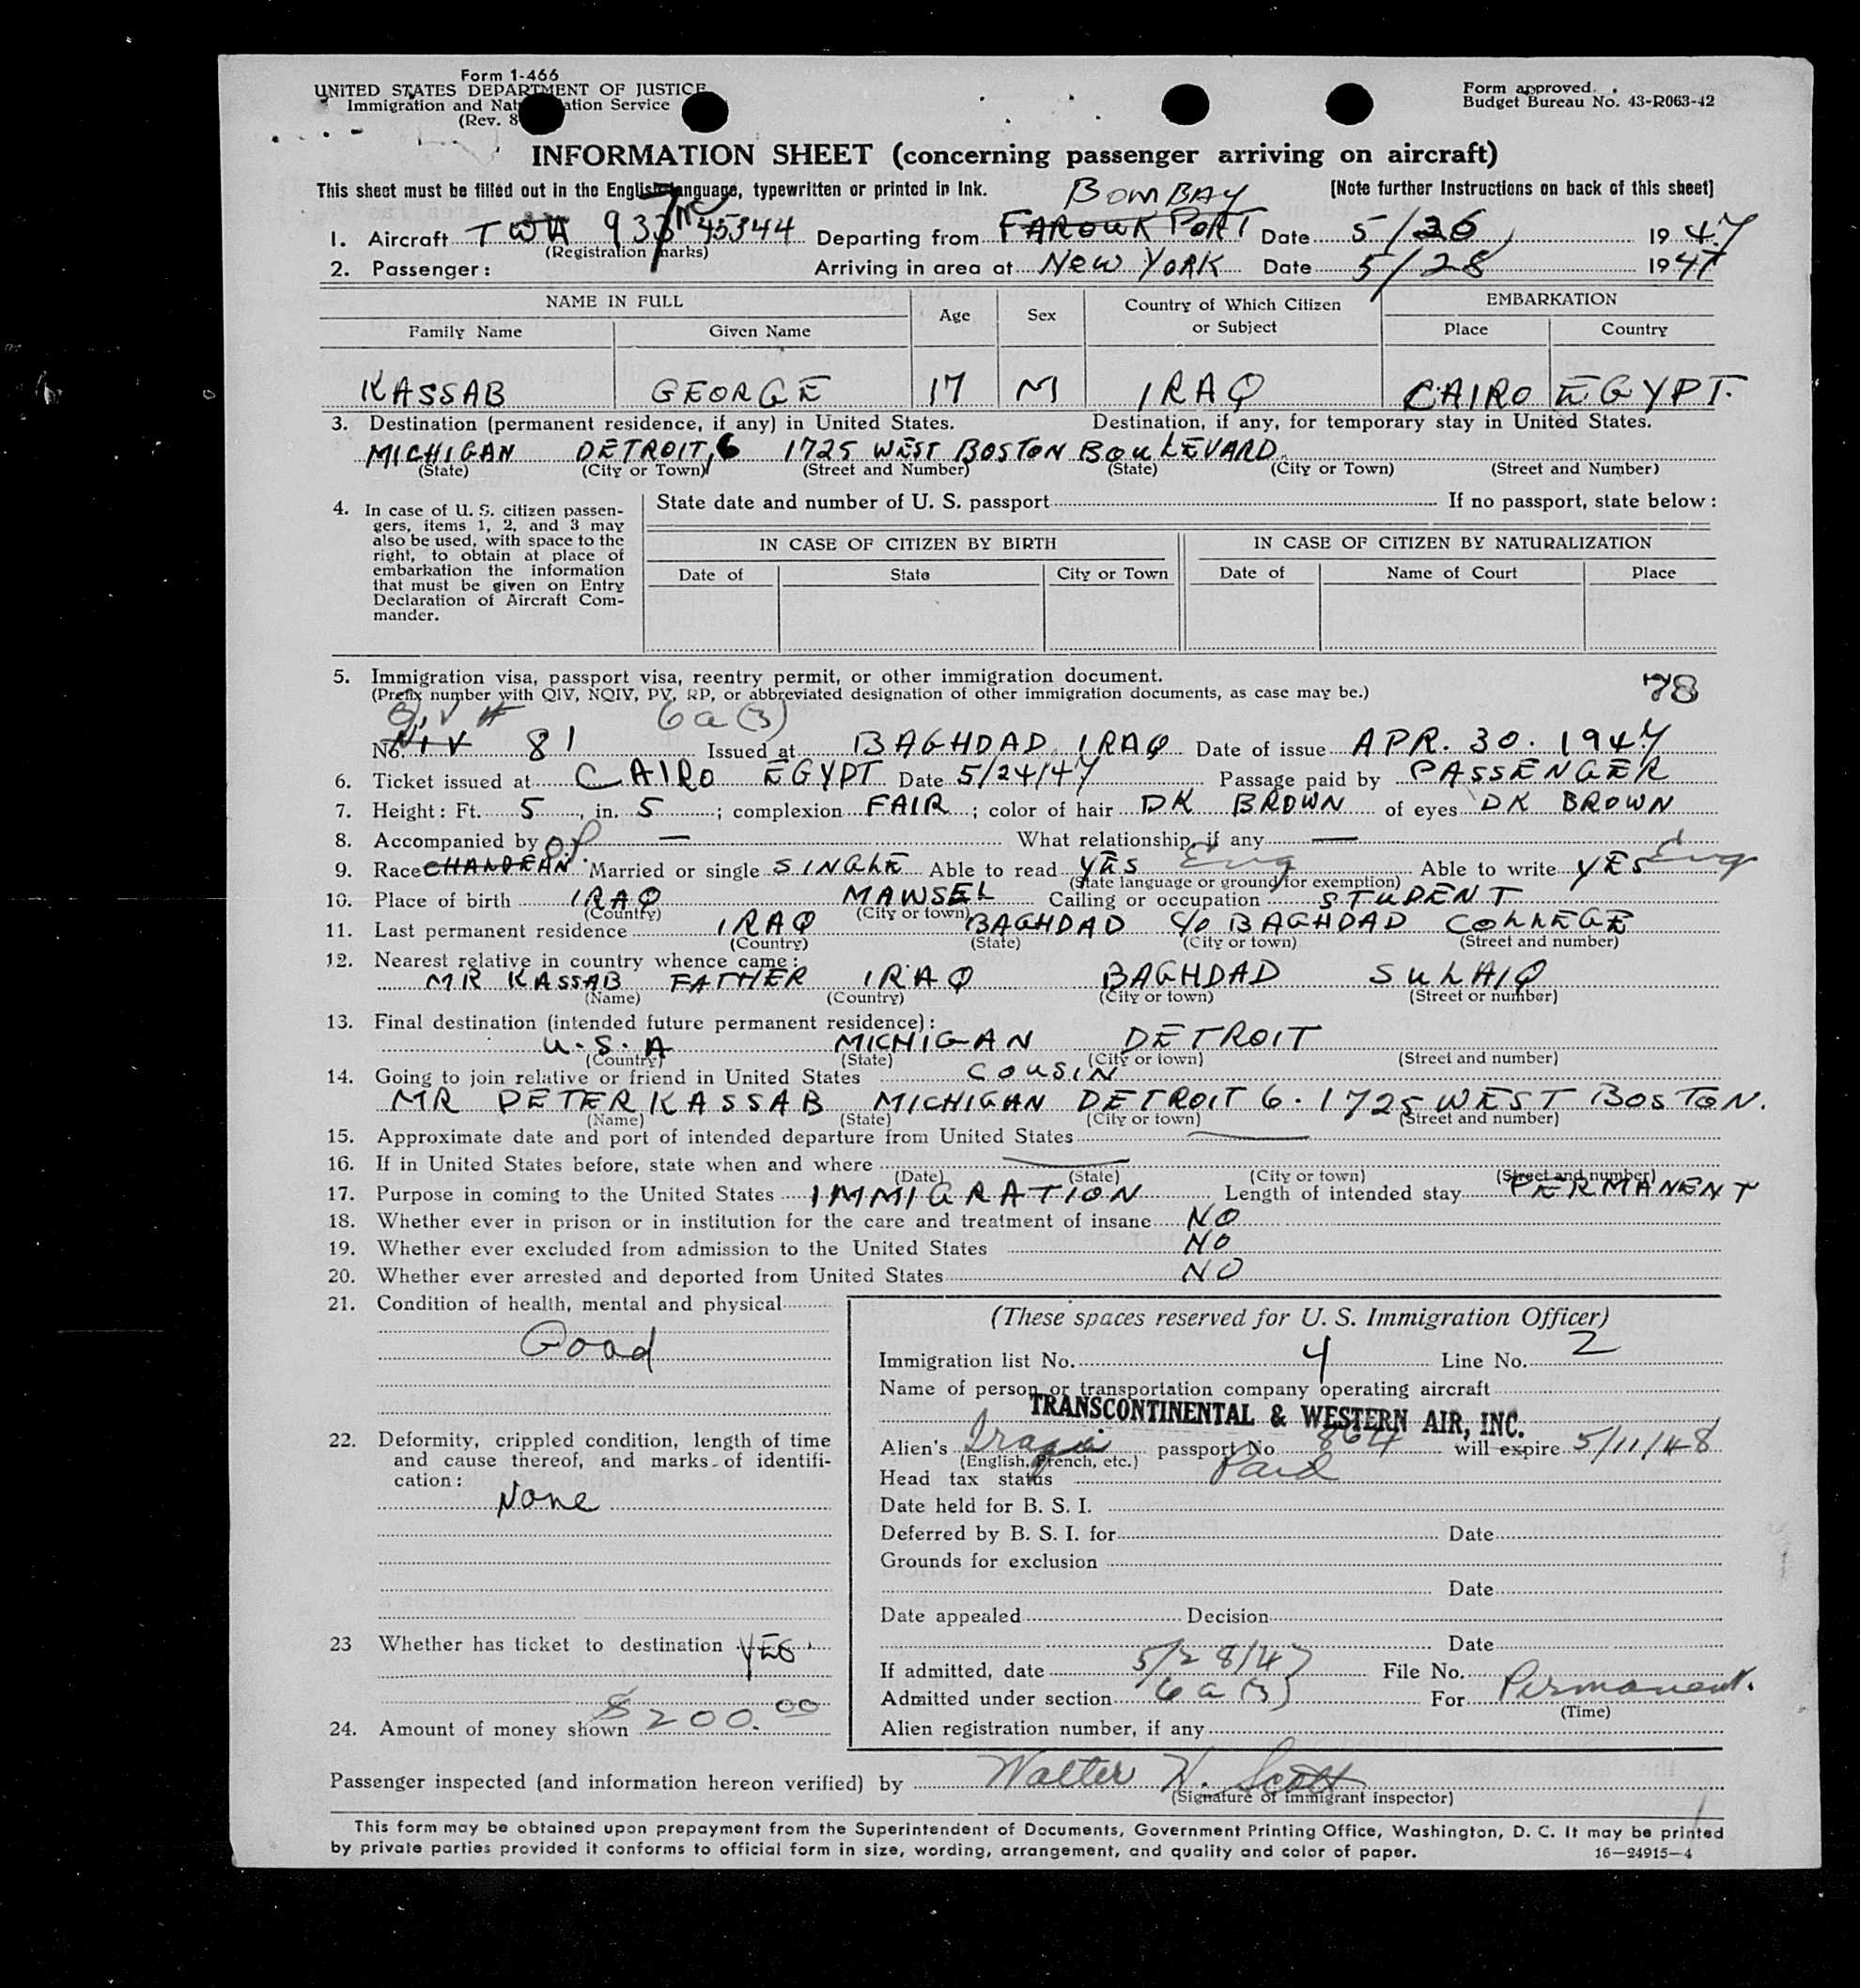 Form 1-466
UNITED STATES DEPARTMENT OF JUSTICE
Immigration and Nat ation Service
(Rev. 8
Form approved.
Budget Bureau No. 43-R063-42
INFORMATION SHEET (concerning passenger arriving on aircraft)
This sheet must be filled out in the English language, typewritten or printed in Ink. [Note further Instructions on back of this sheet]
BOMBAY
1. Aircraft TWA 937 NC 45344 Departing from FAROUK PORT Date 5/26 1947
(Registration marks)
2. Passenger: Arriving in area at NEW YORK Date 5/28 1947
NAME IN FULL Age Sex Country of Which Citizen or Subject EMBARKATION
Family Name Given Name Place Country
KASSAB GEORGE 17 M IRAQ CAIRO EGYPT.
3. Destination (permanent residence, if any) in United States. Destination, if any, for temporary stay in United States.
MICHIGAN DETROIT, 6 1725 WEST BOSTON BOULEVARD
(State) (City or Town) (Street and Number) (State) (City or Town) (Street and Number)
4. In case of U. S. citizen passen-
gers, items 1, 2, and 3 may
also be used, with space to the
right, to obtain at place of
embarkation the information
that must be given on Entry
Declaration of Aircraft Com-
mander.
State date and number of U. S. passport If no passport, state below:
IN CASE OF CITIZEN BY BIRTH IN CASE OF CITIZEN BY NATURALIZATION
Date of State City or Town Date of Name of Court Place
5. Immigration visa, passport visa, reentry permit, or other immigration document.
(Prefix number with QIV, NQIV, PV, RP, or abbreviated designation of other immigration documents, as case may be.)
78
QIV # 6a(3)
No. NIV 81 Issued at BAGHDAD IRAQ Date of issue APR. 30. 1947
6. Ticket issued at CAIRO EGYPT Date 5/24/47 Passage paid by PASSENGER
7. Height: Ft. 5, in. 5; complexion FAIR; color of hair DK BROWN of eyes DK BROWN
8. Accompanied by — What relationship, if any —
9. Race CHALDEAN Married or single SINGLE Able to read YES Eng Able to write YES Eng
(State language or ground for exemption)
10. Place of birth IRAQ MAWSEL Calling or occupation STUDENT
(Country) (City or town)
11. Last permanent residence IRAQ BAGHDAD C/O BAGHDAD COLLEGE
(Country) (State) (City or town) (Street and number)
12. Nearest relative in country whence came:
MR KASSAB FATHER IRAQ BAGHDAD SULHIQ
(Name) (Country) (City or town) (Street or number)
13. Final destination (intended future permanent residence):
U.S.A MICHIGAN DETROIT
(Country) (State) (City or town) (Street and number)
14. Going to join relative or friend in United States COUSIN
MR PETER KASSAB MICHIGAN DETROIT 6. 1725 WEST BOSTON.
(Name) (State) (City or town) (Street and number)
15. Approximate date and port of intended departure from United States —
16. If in United States before, state when and where —
(Date) (State) (City or town) (Street and number)
17. Purpose in coming to the United States IMMIGRATION Length of intended stay PERMANENT
18. Whether ever in prison or in institution for the care and treatment of insane NO
19. Whether ever excluded from admission to the United States NO
20. Whether ever arrested and deported from United States NO
21. Condition of health, mental and physical
Good
22. Deformity, crippled condition, length of time
and cause thereof, and marks of identifi-
cation:
None
23 Whether has ticket to destination YES
24. Amount of money shown $200.00
(These spaces reserved for U. S. Immigration Officer)
Immigration list No. 4 Line No. 2
Name of person or transportation company operating aircraft
TRANSCONTINENTAL & WESTERN AIR, INC.
Alien's Iraqi passport No. 864 will expire 5/11/48
(English, French, etc.)
Head tax status Paid
Date held for B. S. I.
Deferred by B. S. I. for Date
Grounds for exclusion
Date
Date appealed Decision
Date
If admitted, date 5/28/47 File No.
Admitted under section 6a(3) For Permanent.
(Time)
Alien registration number, if any
Passenger inspected (and information hereon verified) by Walter W. Scott
(Signature of immigrant inspector)
This form may be obtained upon prepayment from the Superintendent of Documents, Government Printing Office, Washington, D. C. It may be printed
by private parties provided it conforms to official form in size, wording, arrangement, and quality and color of paper. 16—24915-4